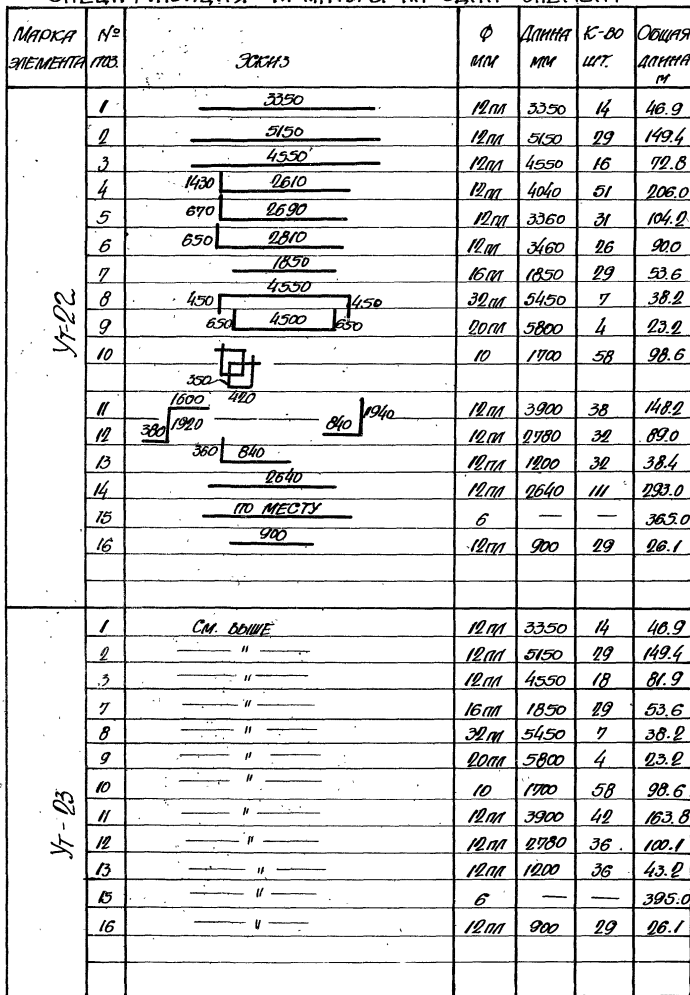 СПЕЦИФИКАЦИЯ АРМАТУРЫ НА ОДИН ЭЛЕМЕНТ
МАРКА ЭЛЕМЕНТА № ПОЗ. ЭСКИЗ Ф ММ ДЛИНА ММ К-ВО ШТ. ОБЩАЯ ДЛИНА М
УТ-22
1 3350 12ПЛ 3350 14 46.9
2 5150 12ПЛ 5150 29 149.4
3 4550 12ПЛ 4550 16 72.8
4 1430 2610 12ПЛ 4040 51 206.0
5 670 2690 12ПЛ 3360 31 104.2
6 650 2810 12ПЛ 3460 26 90.0
7 1850 16ПЛ 1850 29 53.6
8 450 4550 450 32ПЛ 5450 7 38.2
9 650 4500 650 20ПЛ 5800 4 23.2
10 350 420 10 1700 58 98.6
11 380 1920 1600 12ПЛ 3900 38 148.2
12 840 1940 12ПЛ 2780 32 89.0
13 360 840 12ПЛ 1200 32 38.4
14 2640 12ПЛ 2640 111 293.0
15 ПО МЕСТУ 6 — — 365.0
16 900 12ПЛ 900 29 26.1
УТ-23
1 СМ. ВЫШЕ 12ПЛ 3350 14 46.9
2 — " — 12ПЛ 5150 29 149.4
3 — " — 12ПЛ 4550 18 81.9
7 — " — 16ПЛ 1850 29 53.6
8 — " — 32ПЛ 5450 7 38.2
9 — " — 20ПЛ 5800 4 23.2
10 — " — 10 1700 58 98.6
11 — " — 12ПЛ 3900 42 163.8
12 — " — 12ПЛ 2780 36 100.1
13 — " — 12ПЛ 1200 36 43.2
15 — " — 6 — — 395.0
16 — " — 12ПЛ 900 29 26.1